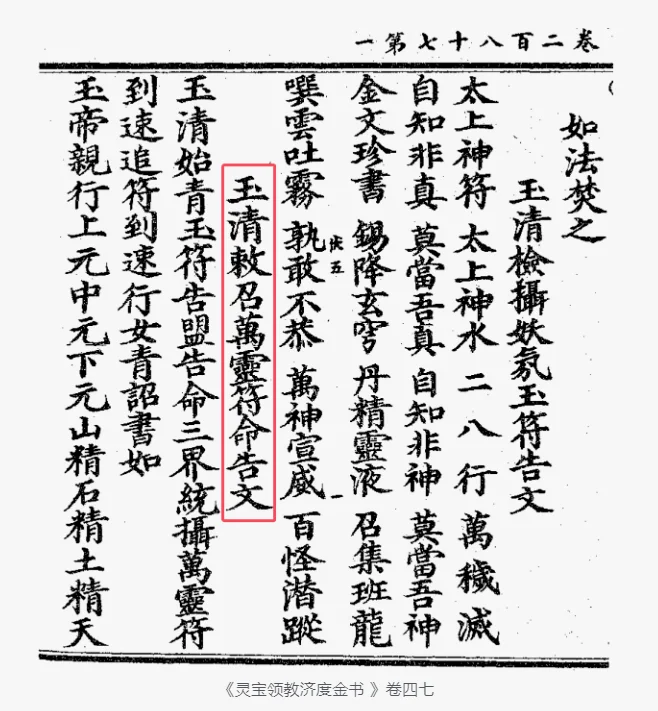 卷二百八十七第一
如法焚之
玉清檢攝妖氛玉符告文
太上神符 太上神水 二八行 萬穢滅
自知非真 莫當吾真 自知非神 莫當吾神
金文珍書 錫降玄穹 丹精靈液 召集班龍
噀雲吐霧 孰敢不恭 萬神宣威 百怪潜蹤
伏五
一
玉清敕召萬靈符命告文
玉清始青玉符告盟告命三界統攝萬靈符
到速追符到速行女青詔書如
玉帝親行上元中元下元山精石精土精天
《灵宝领教济度金书 》卷四七